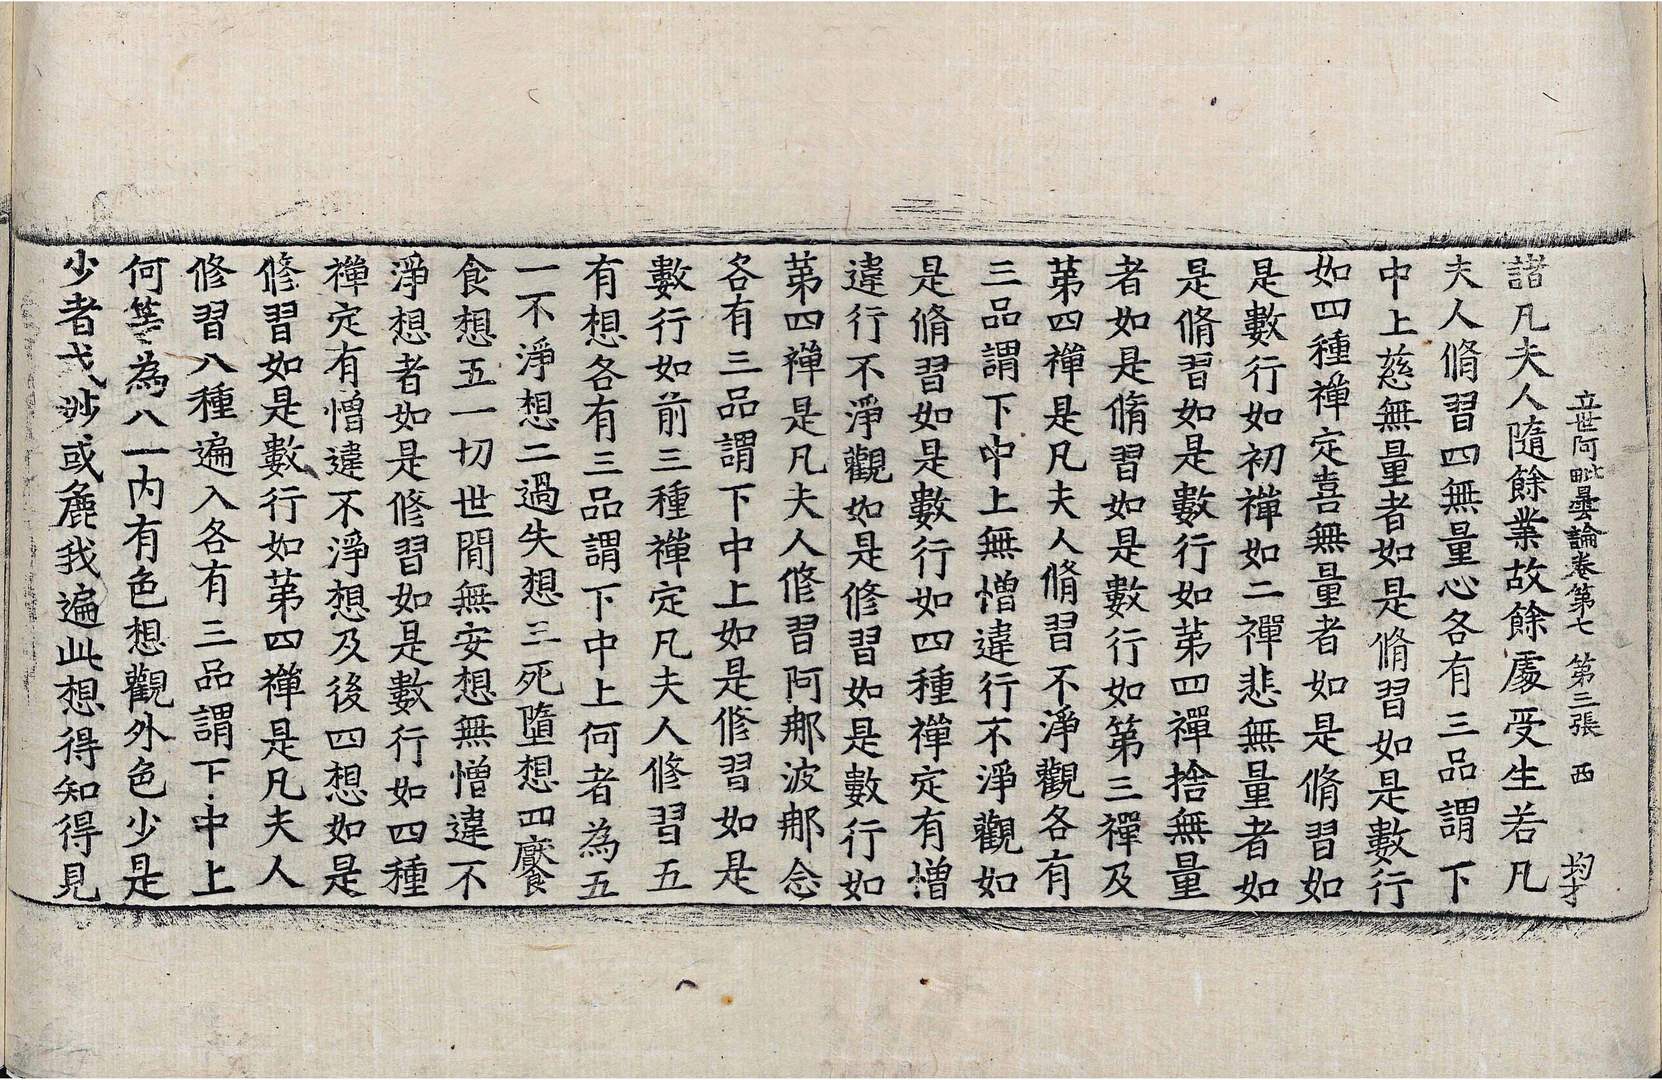 立世阿毗曇論卷第七 第三張 西 均才
諎凡夫人隨餘業故餘處受生若凡
夫人脩習四無量心各有三品謂下
中上慈無量者如是脩習如是數行
如四種禪定喜無量者如是脩習如
是數行如初禪如二禪悲無量者如
是脩習如是數行如第四禪捨無量
者如是脩習如是數行如第三禪及
第四禪是凡夫人脩習不淨觀各有
三品謂下中上無憎違行不淨觀如
是脩習如是數行如四種禪定有憎
違行不淨觀如是修習如是數行如
第四禪是凡夫人修習阿那波那念
各有三品謂下中上如是修習如是
數行如前三種禪定凡夫人修習五
有想各有三品謂下中上何者為五
一不淨想二過失想三死墮想四厭食
食想五一切世間無安想無憎違不
淨想者如是修習如是數行如四種
禪定有憎違不淨想及後四想如是
修習如是數行如第四禪是凡夫人
修習八種遍入各有三品謂下中上
何等為八一內有色想觀外色少是
少者或妙或麁我遍此想得知得見